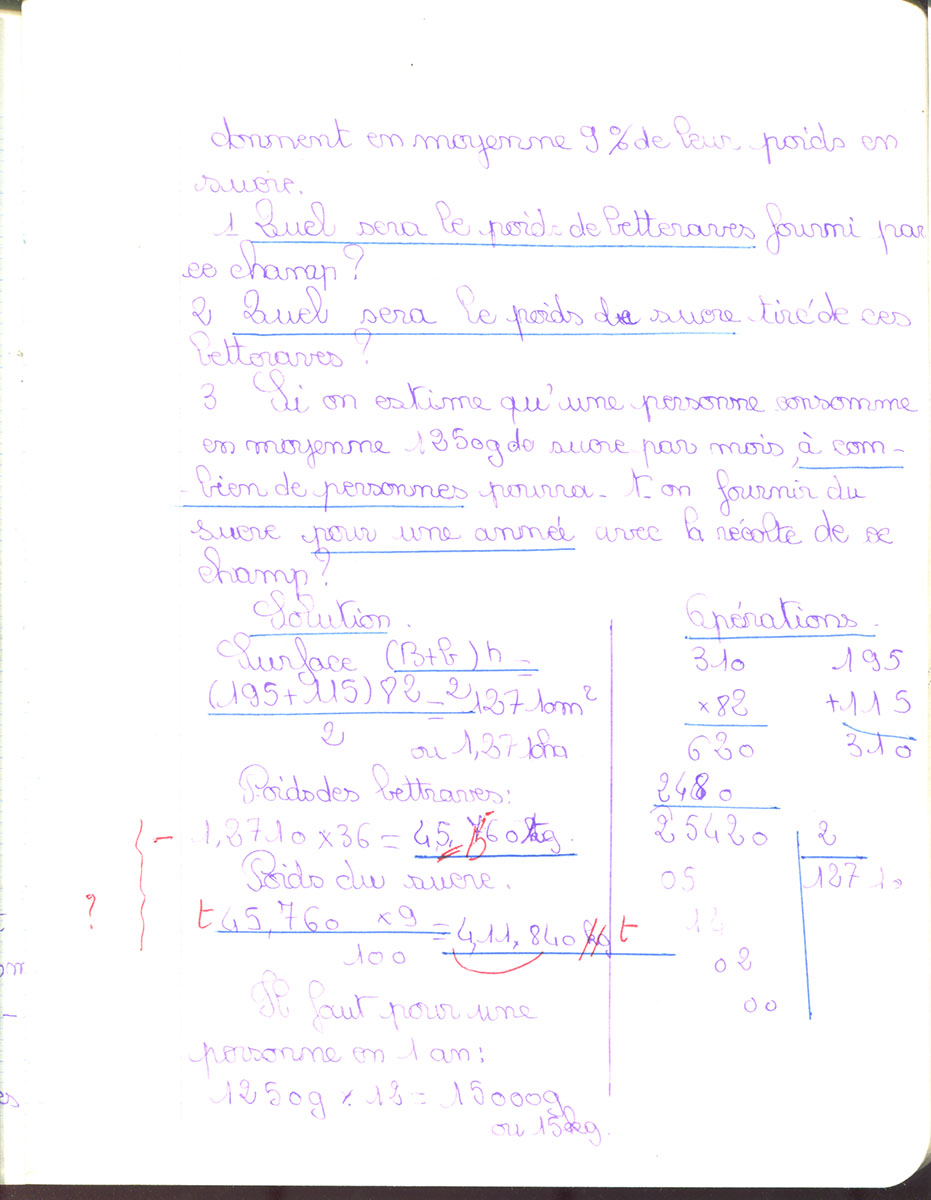 donnent en moyenne 9 % de leur poids en
sucre.
1 Quel sera le poids de betteraves fourni par
ce champ?
2 Quel sera le poids de sucre tiré de ces
betteraves?
3 Si on estime qu'une personne consomme
en moyenne 1250g de sucre par mois, à com-
-bien de personnes pourra-t-on fournir du
sucre pour une année avec la récolte de se
champ?
Solution.
Surface (B+b)h =
(195+115)82 = 2 12710m²
2
ou 1,2710ha
Poids des bettraves:
- 1,2710 × 36 = 45,760 kg.
Poids du sucre.
? t 45,760 × 9 = 4,11,840 kg t
100
Il faut pour une
personne en 1 an:
1250g × 12 = 15000g
ou 15kg.
Opérations.
310 195
×82 +115
620 310
2480
25420 2
05 12710
14
02
00